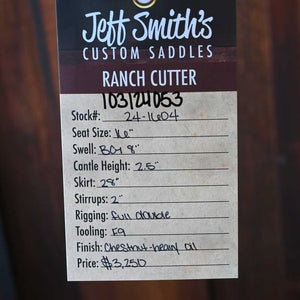 Jeff Smith's
CUSTOM SADDLES
RANCH CUTTER
103124053
Stock#: 24-1604
Seat Size: 16"
Swell: 8"
Cantle Height: 2.5"
Skirt: 28"
Stirrups: 2"
Rigging: full double
Tooling:
Finish: Chestnut-heavy oil
Price: $3,250